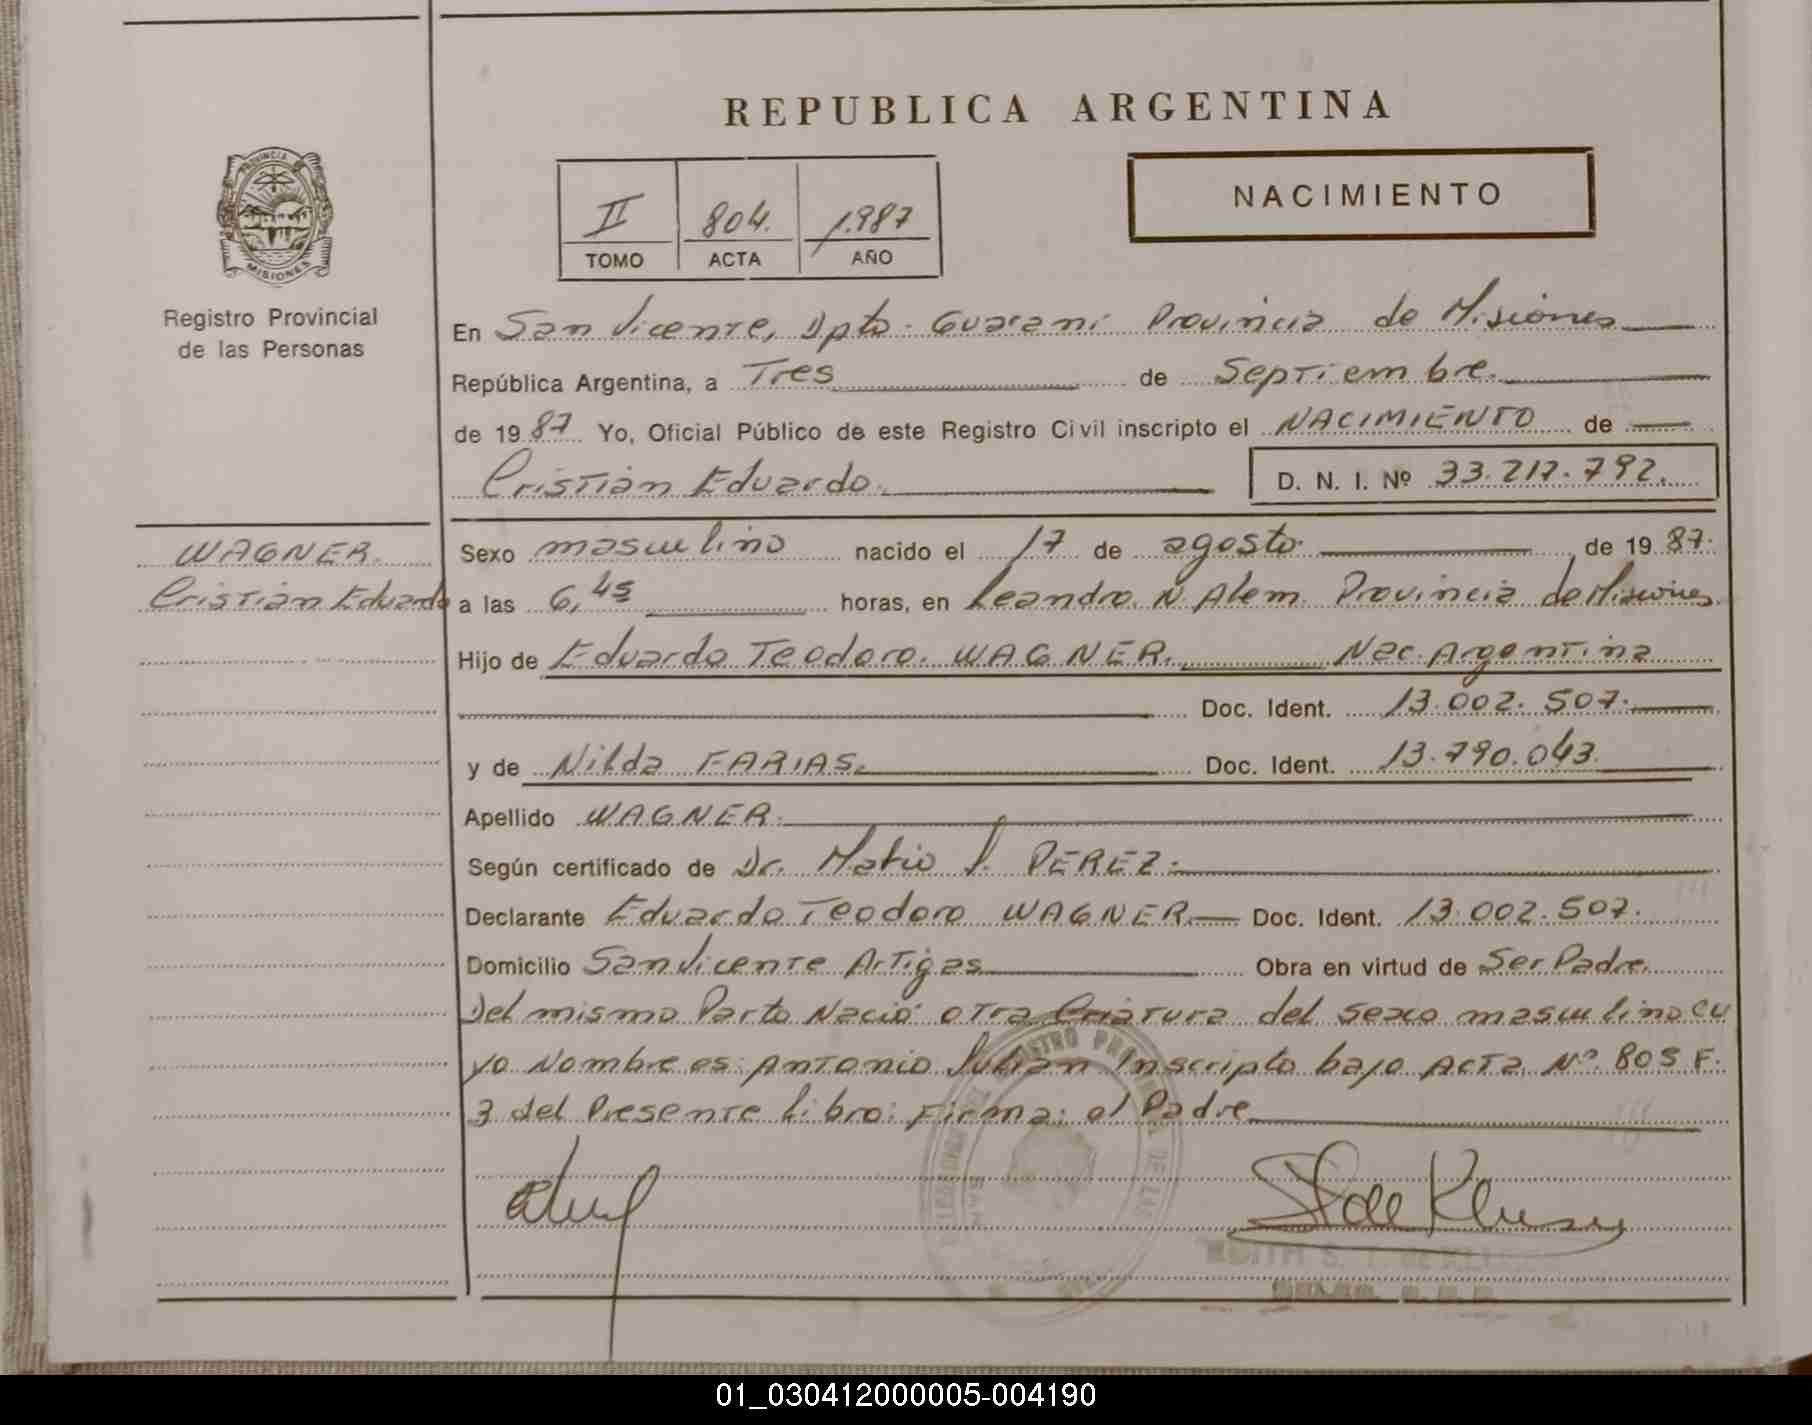 REPUBLICA ARGENTINA
PROVINCIA DE
MISIONES
Registro Provincial
de las Personas
II 804. 1.987
TOMO ACTA AÑO
NACIMIENTO
En San Vicente, Dpto. Guarani Provincia de Misiones
República Argentina, a Tres de Septiembre.
de 1987 Yo, Oficial Público de este Registro Civil inscripto el NACIMIENTO de
Cristian Eduardo. D. N. I. Nº 33.217.792.
WAGNER.
Cristian Eduardo
Sexo masculino nacido el 17 de agosto de 1987.
a las 6,45 horas, en Leandro N Alem Provincia de Misiones
Hijo de Eduardo Teodoro WAGNER. Nac. Argentina
Doc. Ident. 13.002.507.
y de Nilda FARIAS. Doc. Ident. 13.790.043.
Apellido WAGNER.
Según certificado de Dr. Mario J. PEREZ.
Declarante Eduardo Teodoro WAGNER Doc. Ident. 13.002.507.
Domicilio San Vicente Artigas Obra en virtud de Ser Padre
Del mismo Parto Nació otra Criatura del sexo masculino cu
yo Nombre es: Antonio Julian Inscripto bajo Acta Nº 805 F.
3 del Presente Libro: Firma: el Padre
EDITH S. T. de
01_030412000005-004190